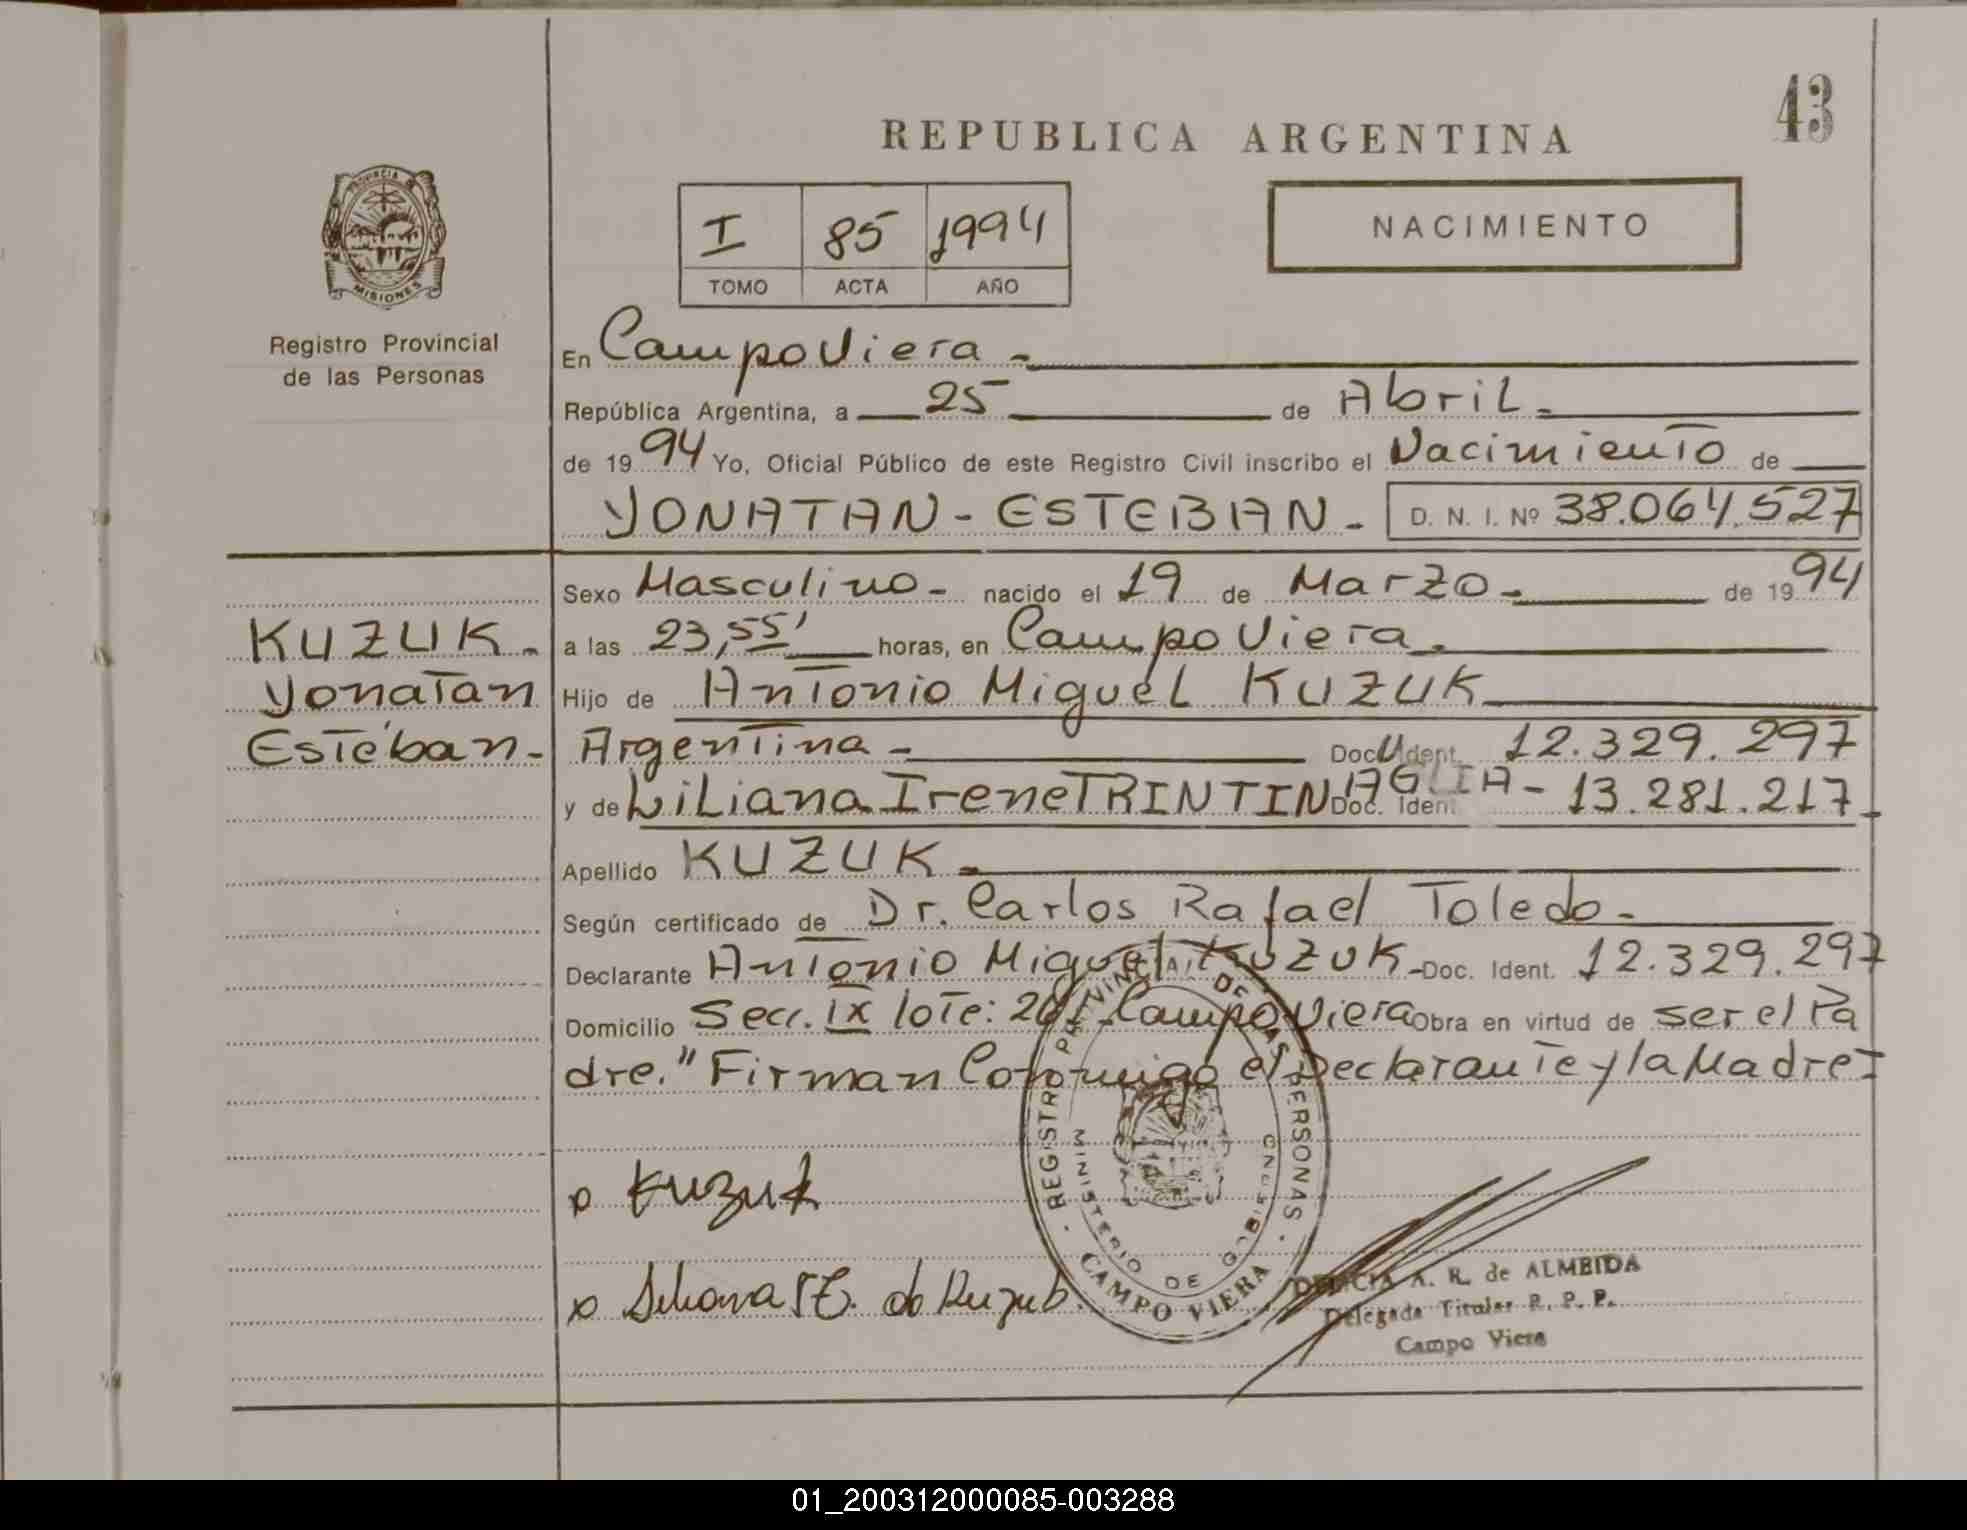 43
REPUBLICA ARGENTINA
PROVINCIA DE
MISIONES
Registro Provincial
de las Personas
I 85 1994
TOMO ACTA AÑO
NACIMIENTO
En Campo Viera -
República Argentina, a 25 de Abril -
de 1994 Yo, Oficial Público de este Registro Civil inscribo el Nacimiento de
YONATAN - ESTEBAN - D. N. I. Nº 38.064.527
Sexo Masculino - nacido el 19 de Marzo - de 1994
KUZUK - a las 23,55' horas, en Campo Viera -
Yonatan Hijo de Antonio Miguel KUZUK
Esteban - Argentina - Doc. Ident. 12.329.297
y de Liliana Irene TRINTINAGLIA - Doc. Ident. 13.281.217
Apellido KUZUK -
Según certificado de Dr. Carlos Rafael Toledo -
Declarante Antonio Miguel KUZUK - Doc. Ident. 12.329.297
Domicilio Secc. IX lote: 20 - Campo Viera Obra en virtud de ser el Pa
dre." Firman Conmigo el Declarante y la Madre -
REGISTRO PROVINCIAL DE LAS PERSONAS
MINISTERIO DE GOBIERNO
CAMPO VIERA
Kuzuk
de Kuzuk
A. R. de ALMEIDA
Delegada Titular R. P. P.
Campo Viera
01_200312000085-003288